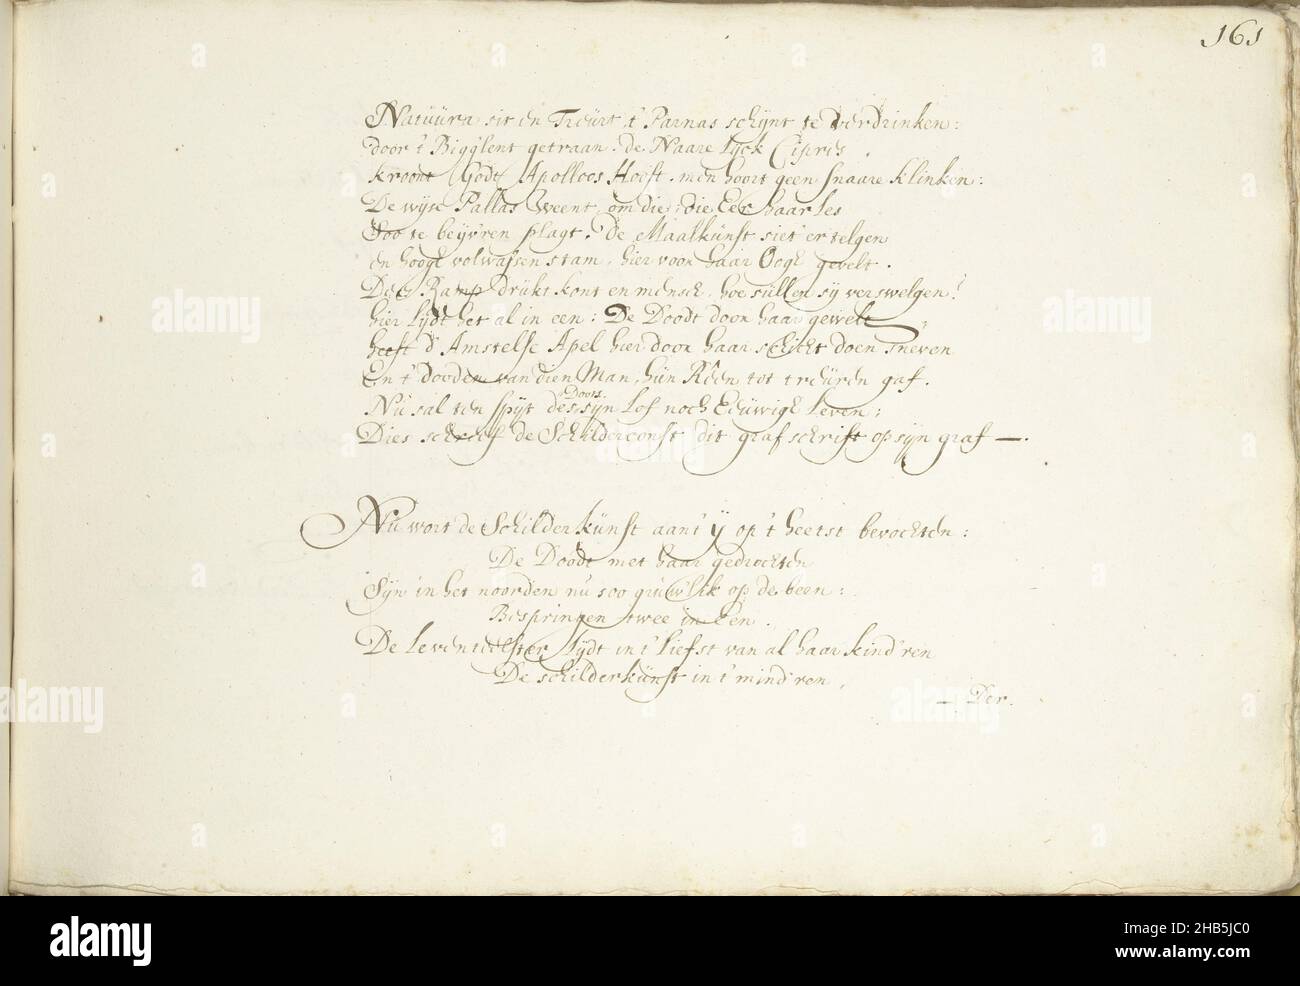 161
Natuúra sit en Treúrt, t' Parnas schijnt te verdrinken:
door t' Bigg'lent getraan. de Naare Lijck Cipres.
kroont Godt Apolloos Hooft. men hoort geen snaare klinken:
De wijse Pallas Weent, om die, die Eer haar les
Soo te beijv'ren plagt. de Maalkúnst siet er telgen
en hooge volwassen stam, hier voor haar Ooge gevelt.
Dees Ramp drúkt kont en mensch. hoe súllen sij verswelgen!
hier lijdt het al in een: De Doodt door haar gewelt,
heeft d' Amstelse Apel hier door haar schicht doen sneven
En t' dooden van dien Man, hún Rêen tot treúren gaf.
Nú sal ten spijt des Doots sijn Lof noch Eeúwige Leven;
Dies schreef de Schilderconst dit graf schrift op sijn graf —.
Nú wort de Schilderkúnst aan t' ij op 't heetst bevochten:
De Doodt met haar gedrochten
Sijn in het noorden nú soo grúwlik op de been:
Bespringen twee in Een.
De Leventeelster Lijdt in t' liefst van al haar kind'ren
De schilderkúnst in t' mind'ren.
— Der.
alamy
Image ID: 2HB5JC0
www.alamy.com